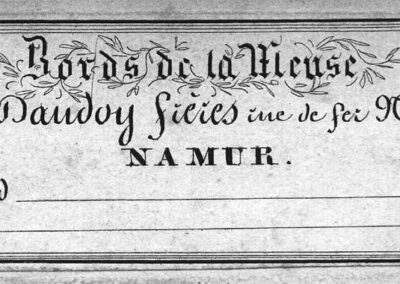 Bords de la Meuse
Dandoy frères rue de fer N
NAMUR.